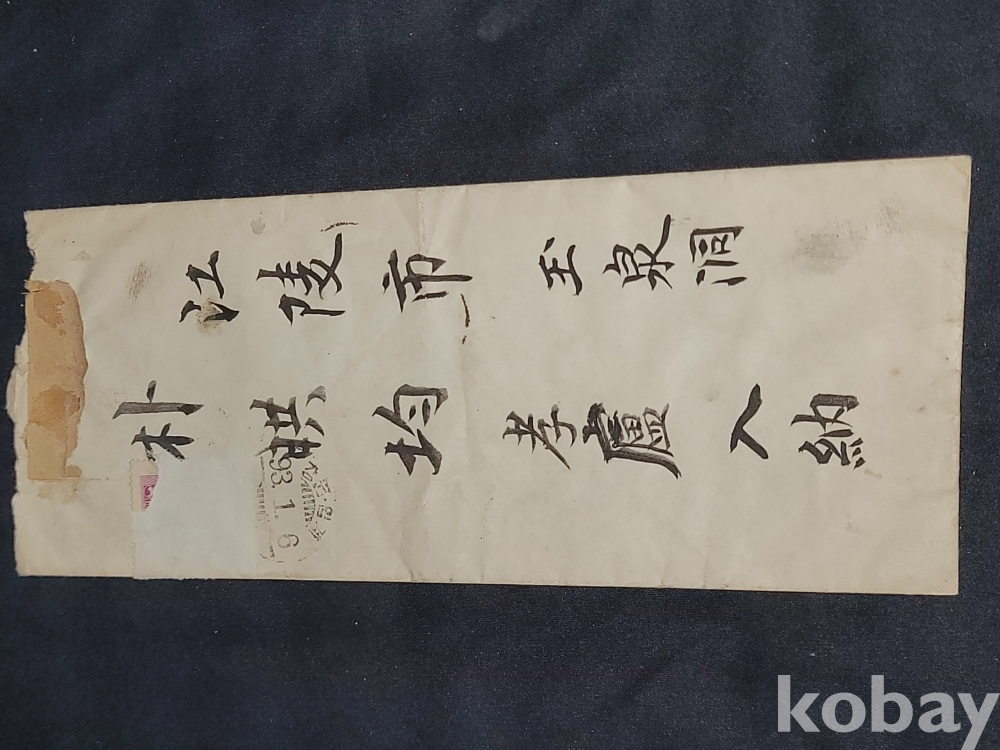 江陵市 玉泉洞
朴 均 孝廬 入納
93. 1. 6
kobay